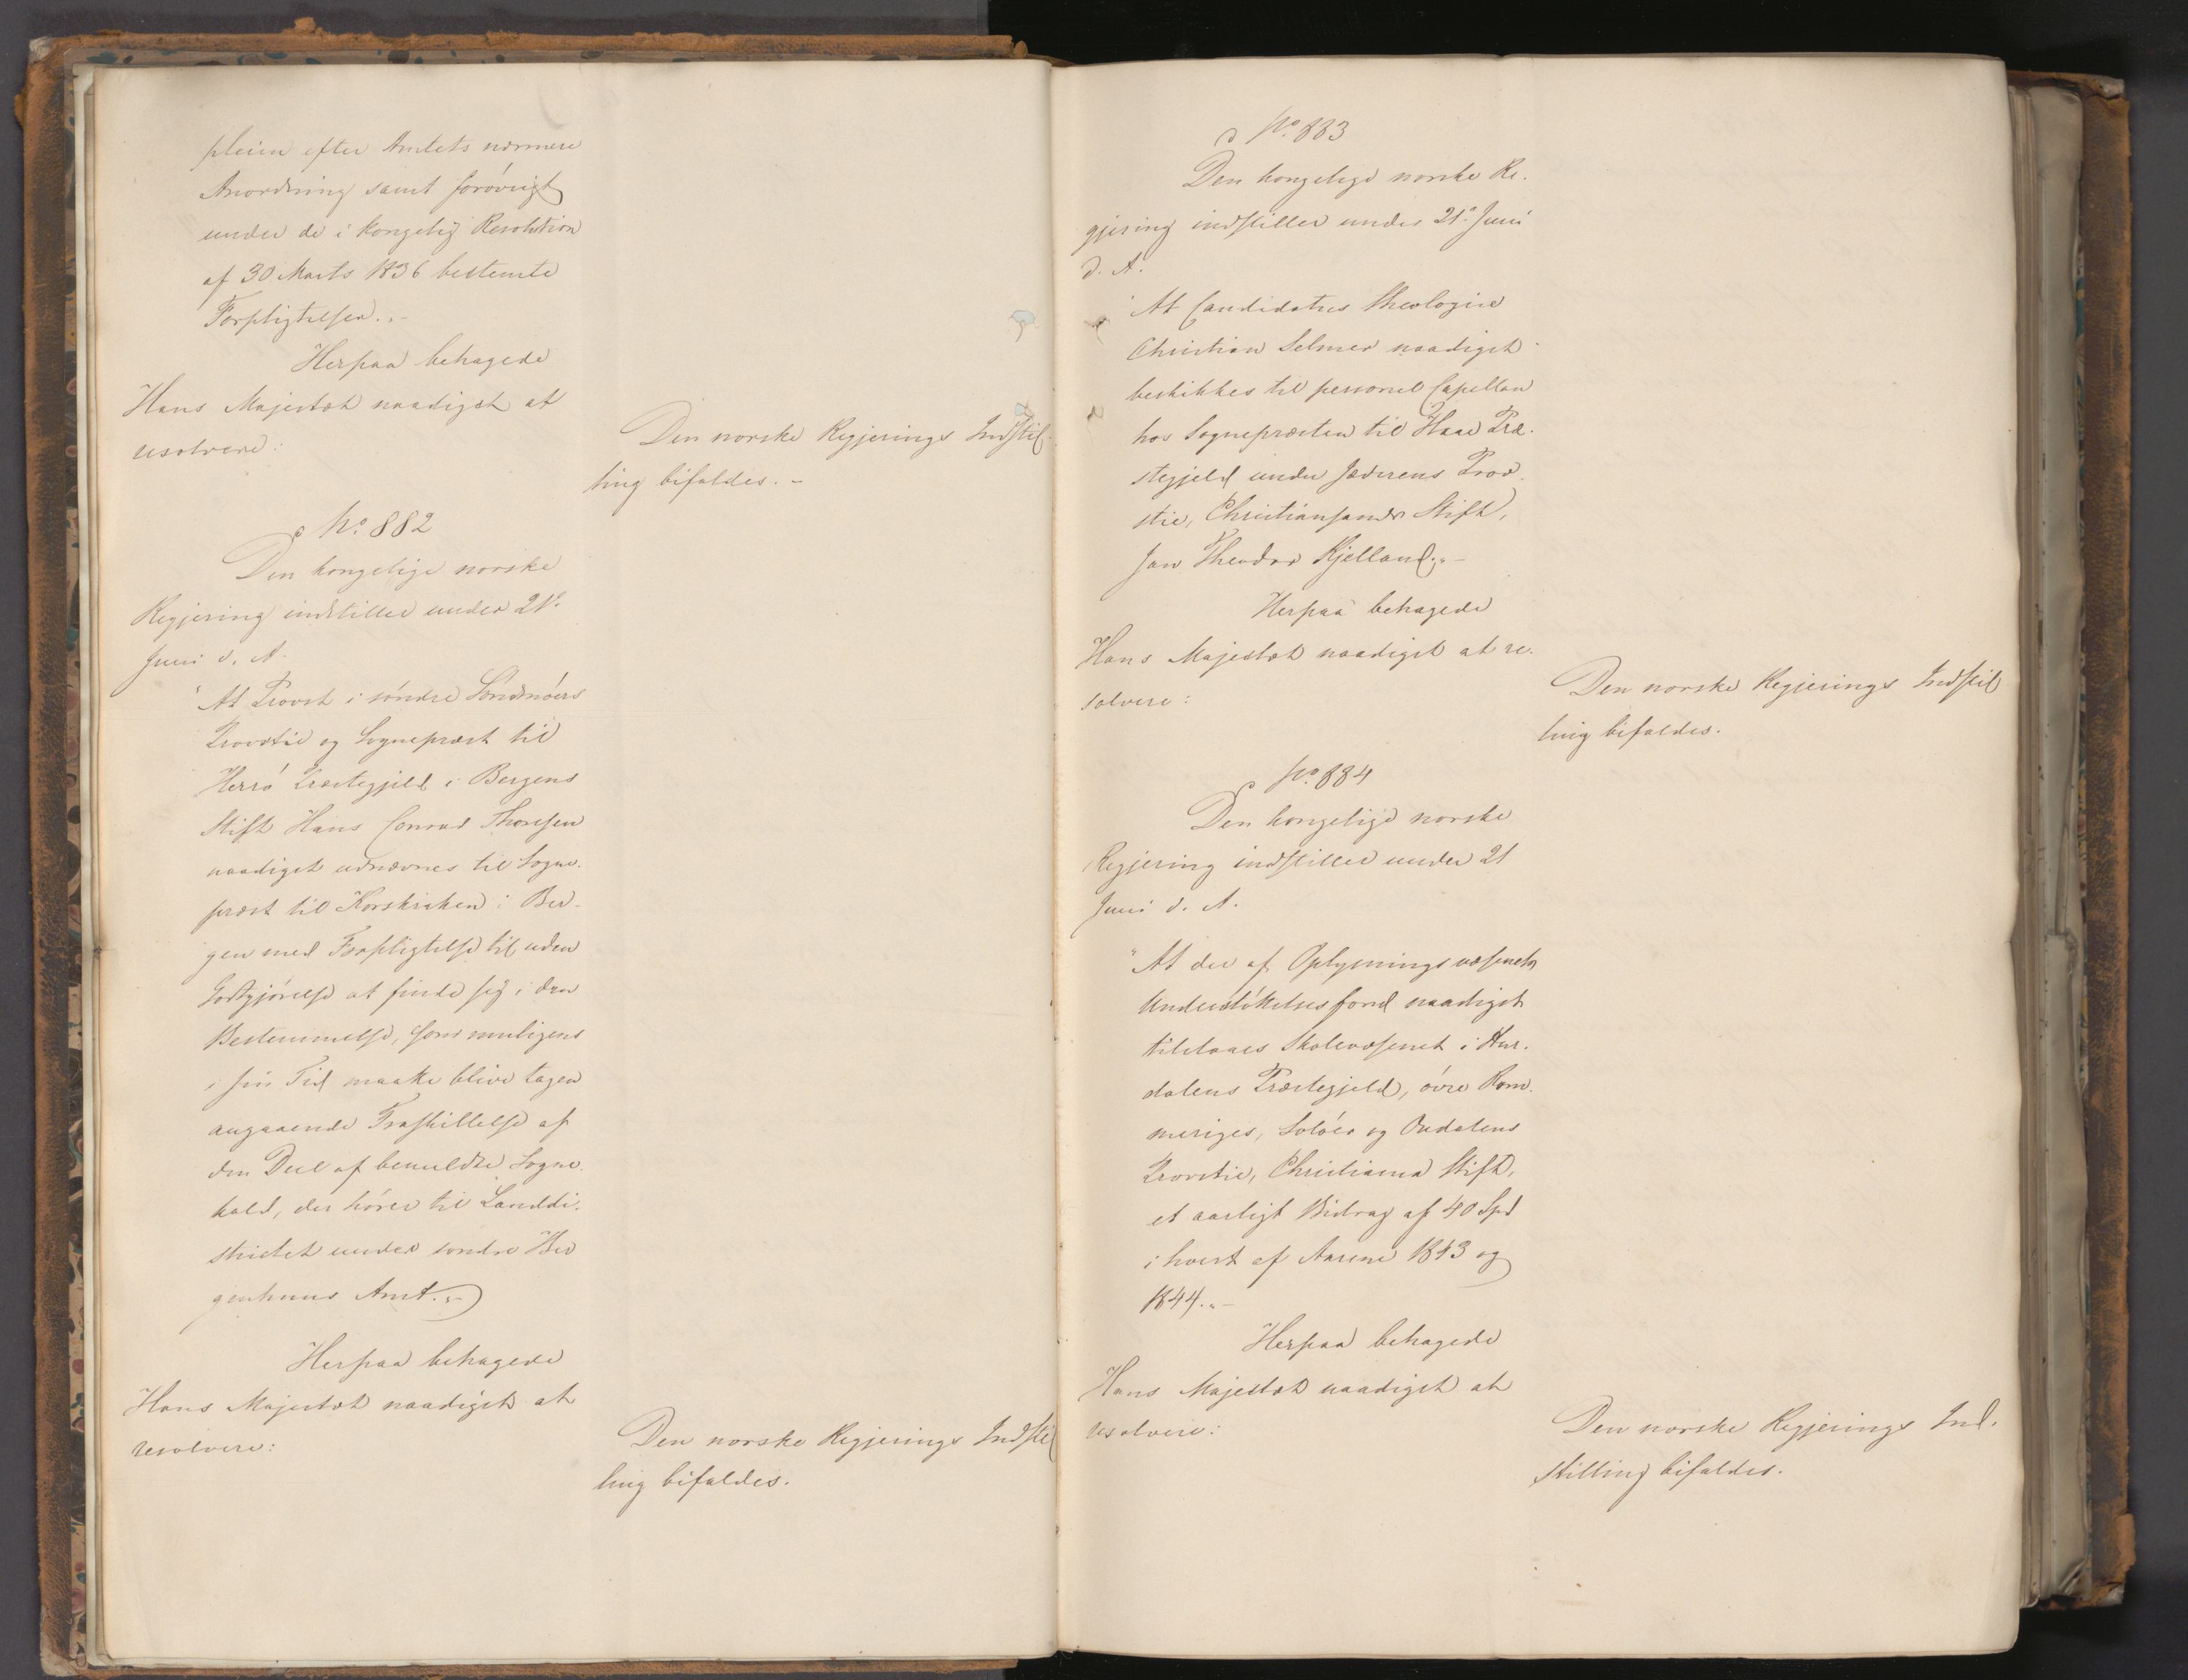 pleien efter Amtets nærmere
Anordning samt forøvrigt
under de i kongelig Resolution
af 30 Marts 1836 bestemte
Forpligtelser."-
Herpaa behagede
Hans Majestæt naadigst at
resolvere:
Den norske Regjerings Indstil-
ling bifaldes.-
No. 882
Den kongelige norske
Regjering indstiller under 21de
Juni d. A.
"At Provst i søndre Søndmøers
Provstie og Sognepræst til
Herrø Præstegjeld i Bergens
Stift Hans Conrad Thoresen
naadigst udnævnes til Sogne-
præst til Korskirken i Ber-
gen med Forpligtelse til uden
Godtgjørelse at finde sig i den
Bestemmelse, som muligens
i sin Tid maatte blive tagen
angaaende Fraskillelse af
den Deel af bemeldte Sogne-
kald, der hører til Landdi-
strictet under søndre Ber
genhuus Amt."-
Herpaa behagede
Hans Majestæt naadigst at
resolvere:
Den norske Regjerings Indstil
ling bifaldes.
No. 883
Den kongelige norske Re-
gjering indstiller under 21de Juni
d. A.
"At Candidatus theologiæ
Christian Selmer naadigst
beskikkes til personel Capellan
hos Sognepræsten til Haae Præ-
stegjeld under Jæderens Prov-
stie, Christiansands Stift,
Jan Theodor Kjelland."-
Herpaa behagede
Hans Majestæt naadigst at re-
solvere:
Den norske Regjerings Indstil
ling bifaldes.
No. 884
Den kongelige norske
Regjering indstiller under 21
Juni d. A.
"At der af Oplysningsvæsenets
Understøttelsesfond naadigst
tilstaaes Skolevæsenet i Hur-
dalens Præstegjeld, øvre Rom-
meriges, Soløer og Oudalens
Provstie, Christiania Stift,
et aarligt Bidrag af 40 Spd
i hvert af Aarene 1843 og
1844."-
Herpaa behagede
Hans Majestæt naadigst at
resolvere:
Den norske Regjerings Ind-
stilling bifaldes.